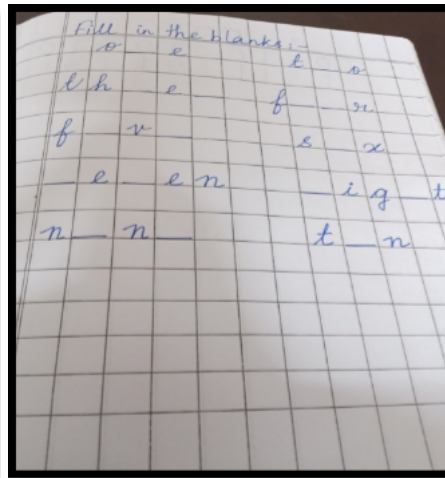 Fill in the blanks:-
o _ e t _ o
th _ e _ f _ _ r
f _ v _ s _ x
_ e _ e n _ i g _ t
n _ n _ t _ n